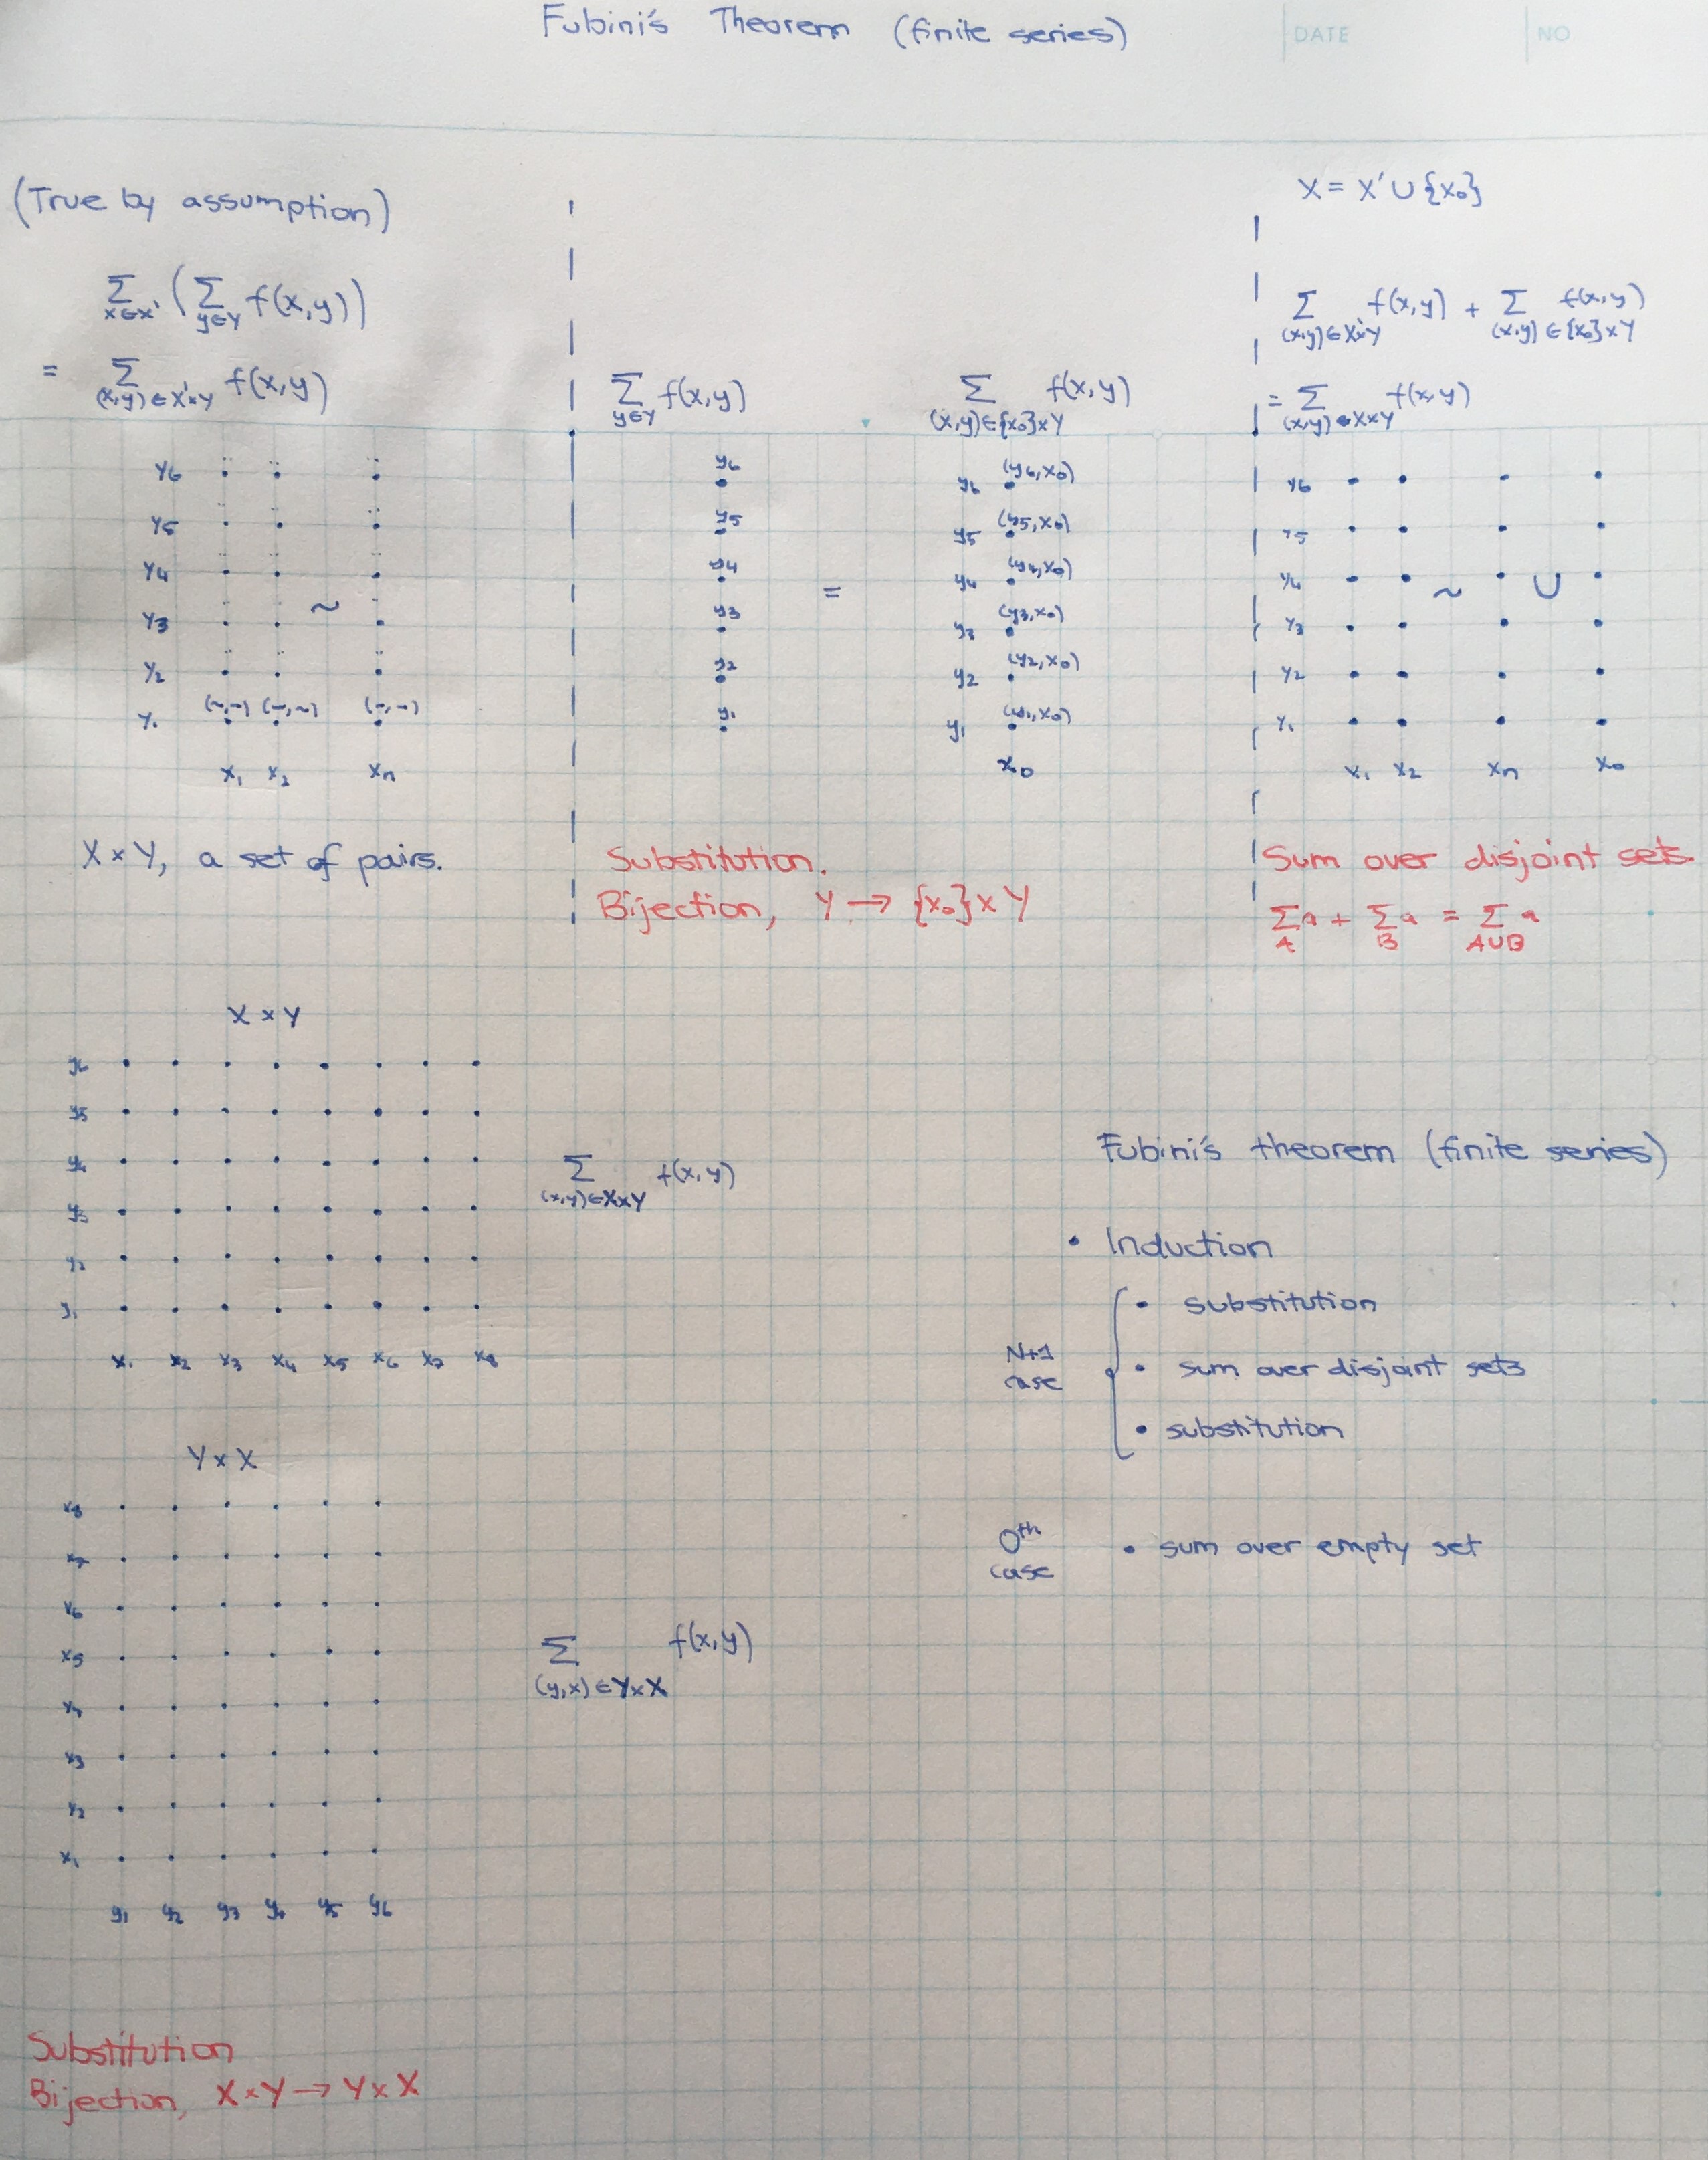 Fubini's Theorem (finite series)
DATE
NO
(True by assumption)
∑_{x∈X'} (∑_{y∈Y} f(x,y))
= ∑_{(x,y)∈X'×Y} f(x,y)
y₆
y₅
y₄
~
y₃
y₂
(~,~) (~,~) (~,~)
y₁
x₁ x₂ xₙ
X × Y, a set of pairs.
∑_{y∈Y} f(x,y)
∑_{(x,y)∈{x₀}×Y} f(x,y)
y₆ y₆ (y₆,x₀)
y₅ y₅ (y₅,x₀)
y₄ y₄ (y₄,x₀)
=
y₃ y₃ (y₃,x₀)
y₂ y₂ (y₂,x₀)
y₁ y₁ (y₁,x₀)
x₀
Substitution.
Bijection, Y → {x₀} × Y
X = X' ∪ {x₀}
∑_{(x,y)∈X'×Y} f(x,y) + ∑_{(x,y)∈{x₀}×Y} f(x,y)
= ∑_{(x,y)∈X×Y} f(x,y)
y₆
y₅
y₄ ~ ∪
y₃
y₂
y₁
x₁ x₂ xₙ x₀
Sum over disjoint sets.
∑_A a + ∑_B a = ∑_{A∪B} a
X × Y
y₆
y₅
y₄
y₃
y₂
y₁
x₁ x₂ x₃ x₄ x₅ x₆ x₇ x₈
∑_{(x,y)∈X×Y} f(x,y)
Y × X
x₈
x₇
x₆
x₅
x₄
x₃
x₂
x₁
y₁ y₂ y₃ y₄ y₅ y₆
∑_{(y,x)∈Y×X} f(x,y)
Substitution
Bijection, X × Y → Y × X
Fubini's theorem (finite series)
• Induction
• substitution
N+1
case
• sum over disjoint sets
• substitution
0th
case
• sum over empty set